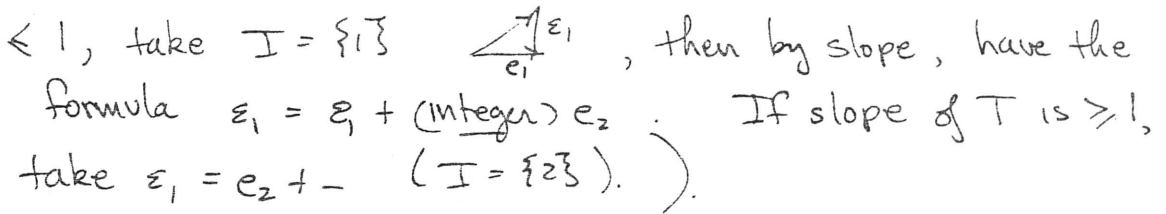 < 1, take I = {1} ε₁ e₁ , then by slope, have the
formula ε₁ = e₁ + (integer) e₂ . If slope of T is ⩾ 1,
take ε₁ = e₂ + – (I = {2}). ).